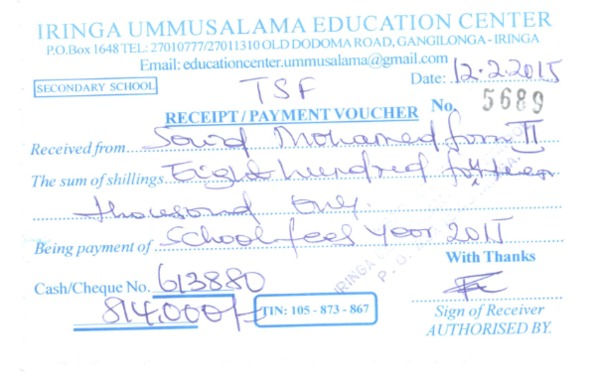 IRINGA UMMUSALAMA EDUCATION CENTER
P.O.Box 1648 TEL: 27010777/27011310 OLD DODOMA ROAD, GANGILONGA - IRINGA
Email: educationcenter.ummusalama@gmail.com
SECONDARY SCHOOL TSF Date: 12.2.2015
RECEIPT / PAYMENT VOUCHER No. 5689
Received from Mohamed form II
The sum of shillings Eight hundred fourteen
thousand only.
Being payment of School fees year 2015
With Thanks
Cash/Cheque No. 613880
814,000/= TIN: 105 - 873 - 867
Sign of Receiver
AUTHORISED BY.